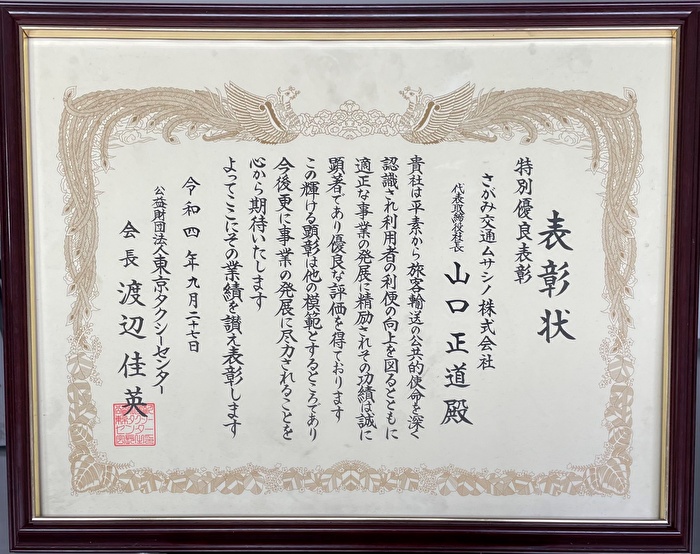 表彰状
特別優良表彰
さがみ交通ムサシノ株式会社
代表取締役社長 山口正道殿
貴社は平素から旅客輸送の公共的使命を深く
認識され利用者の利便の向上を図るとともに
適正な事業の発展に精励されその功績は誠に
顕著であり優良な評価を得ております
この輝ける顕彰は他の模範とするところであり
今後更に事業の発展に尽力されることを
心から期待いたします
よってここにその業績を讃え表彰します
令和四年九月二十七日
公益財団法人東京タクシーセンター
会長 渡辺佳英